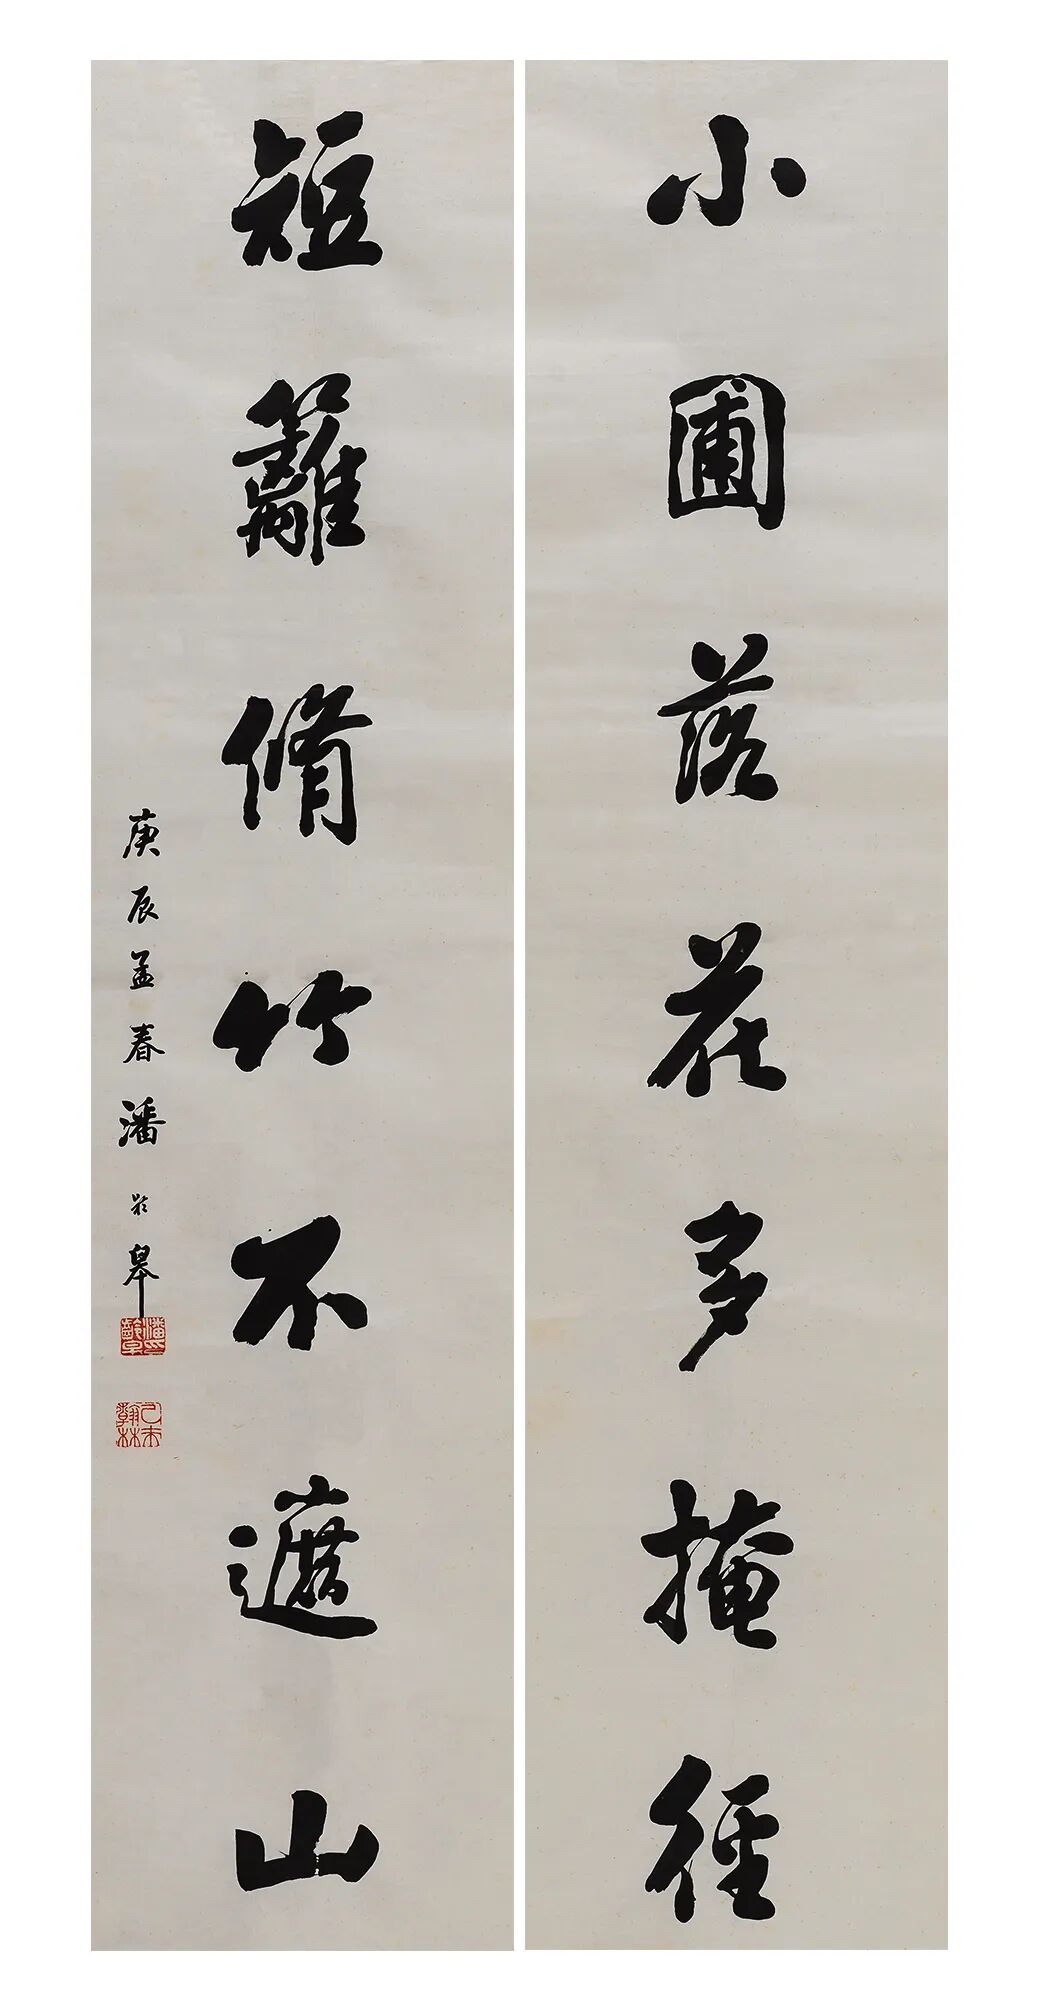 小圃落花多掩徑
短籬脩竹不遮山
庚辰孟春潘齡皋
潘印齡皋
乙未翰林